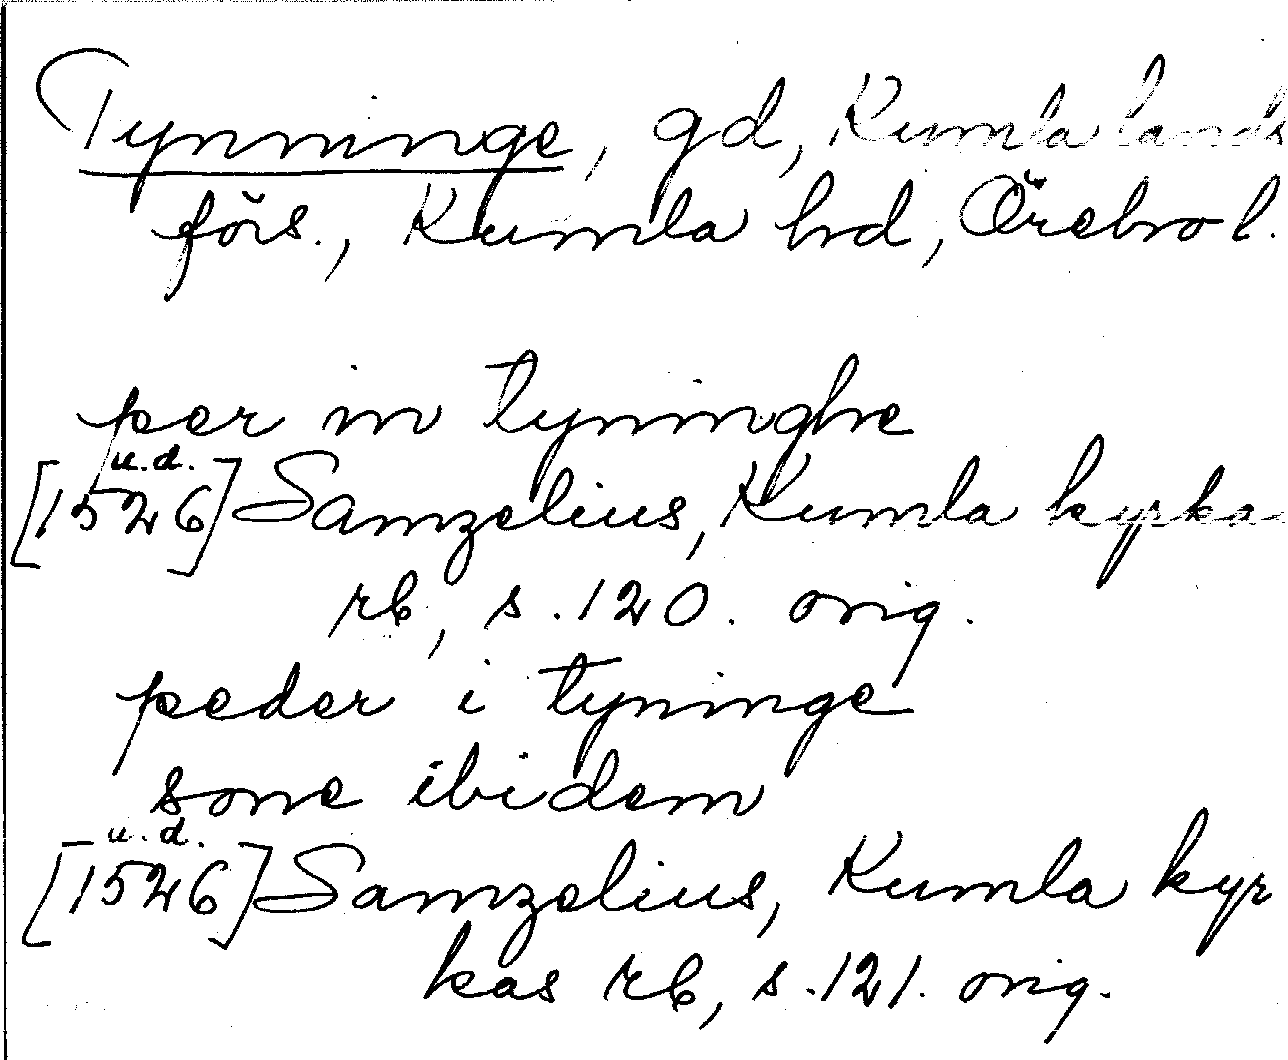 Tynninge, gd, Kumla lands
förs., Kumla hd, Örebro l.
per in tyninghe
u.d.
[1526] Samzelius, Kumla kyrka-
rb, s. 120. orig.
peder i tyninge
sone ibidem
u.d.
[1526] Samzelius, Kumla kyr
kas rb, s. 121. orig.